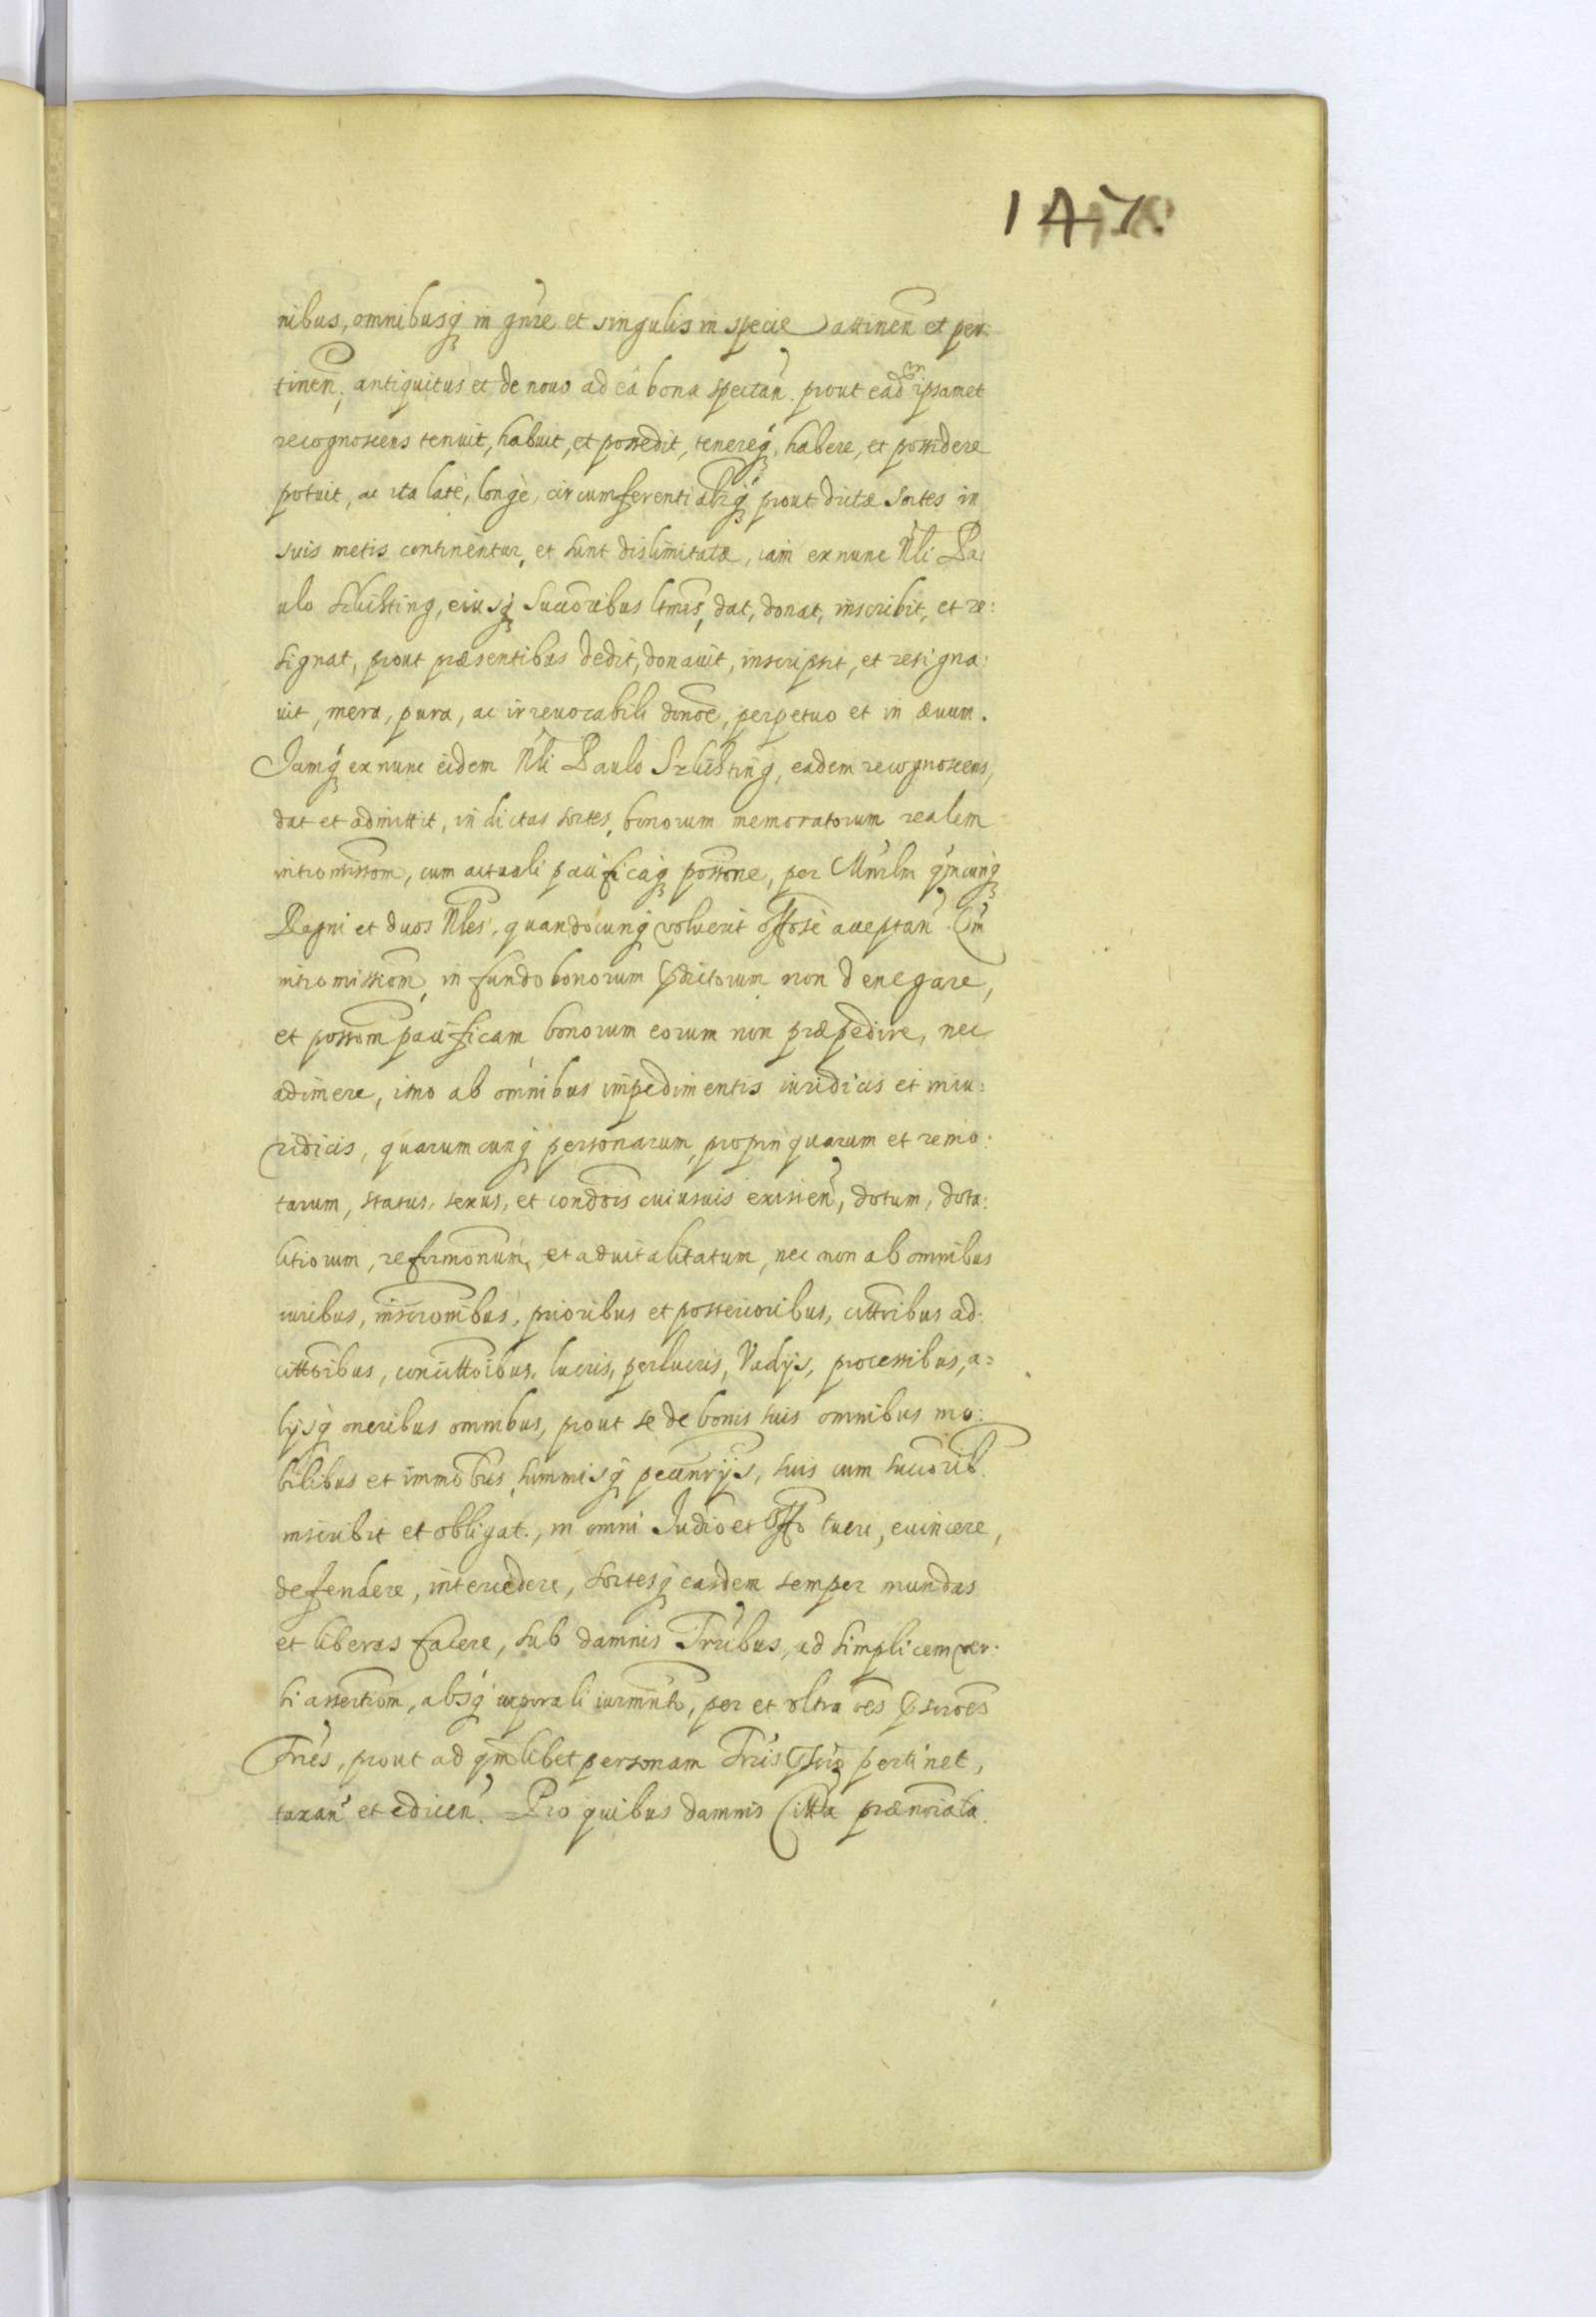 147.
nibus, omnibusq̃ in gn̄re et singulis in specie attinen̄ et per:
tinen̄, antiquitus et de nouo ad ea bona spectan̄. prout eadem ipsamet
recognoscens tenuit, habuit, et possedit, tenereq̃, habere, et possidere
potuit, ac ita latè, longè, circumferentialr̄q̃ prout dictæ Sortes in
suis metis continentur, et sunt dislimitatæ, iam ex nunc Nli Pa:
ulo Szlichting, eiusq̃ Succoribus ltmis, dat, donat, inscribit, et re:
signat, prout præsentibus dedit, donauit, inscripsit, et resigna:
uit, mera, pura, ac irreuocabili donoē, perpetuo et in æuum.
Jamq̃ ex nunc eidem Nli Paulo Szlichting, eadem recognoscens,
dat et admittit, in dictas sortes, bonorum memoratorum realem
intromissom̄, cum actuali pacificaq̃ possone, per Mn̄rlm qm̄cunq̃
Regni et duos Nles, quandocunq̃ voluerit offose acceptan̄. Qm̄
intromissiom̄, in fundo bonorum p̄dictorum non denegare,
et possom̄ pacificam bonorum eorum non præpedire, nec
adimere, imo ab omnibus impedimentis iuridicis et iniu:
ridicis, quarumcunq̃ personarum, propinquarum et remo:
tarum, status, sexus, et condōis cuiusuis existen̄, dotum, dota:
litiorum, reformōnum, et aduitalitatum, nec non ab omnibus
iuribus, inscrōnibus, prioribus et posterioribus, cittōribus ad:
cittōibus, concittōibus, lucris, perlucris, Vadijs, processibus, a=
lijsq̃ oneribus omnibus, prout se de bonis suis omnibus mo:
bilibus et immōbus, summisq̃ pecun̄rijs, suis cum succorib.
inscribit et obligat., in omni Judio et Offo tueri, euincere,
defendere, intercedere, sortesq̃ easdem semper mundas
et liberas facere, sub damnis Trribus, ad simplicem ver:
bi assertiom̄, absq̃ corporali iurmn̄to, per et vltra oēs p̄scrōēs
Trrēs, prout ad qm̄libet personam Trris p̄scrio pertinet,
taxan̄ et edicen̄. Pro quibus damnis Citta prænoiata.